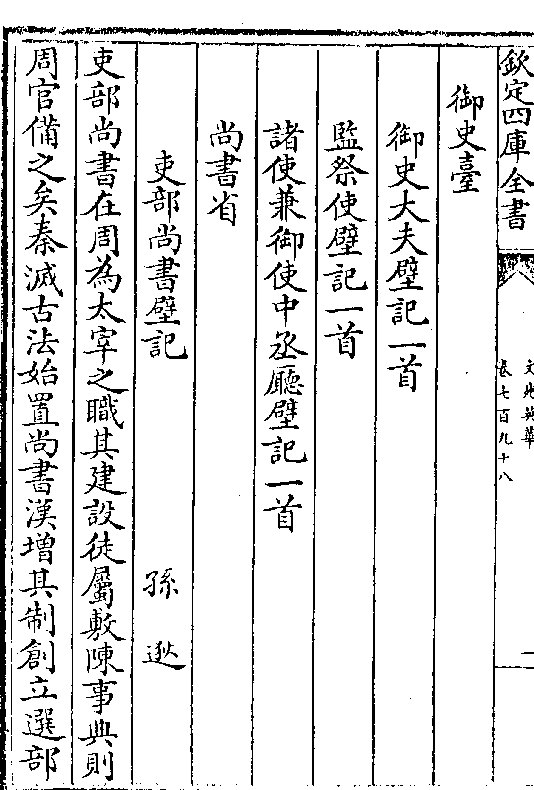 欽定四庫全書
文苑英華
卷七百九十八
御史臺
御史大夫壁記一首
監祭使壁記一首
諸使兼御使中丞廳壁記一首
尚書省
吏部尚書壁記
孫逖
吏部尚書在周為太宰之職其建設徒屬敷陳事典則
周官備之矣秦滅古法始置尚書漢增其制創立選部